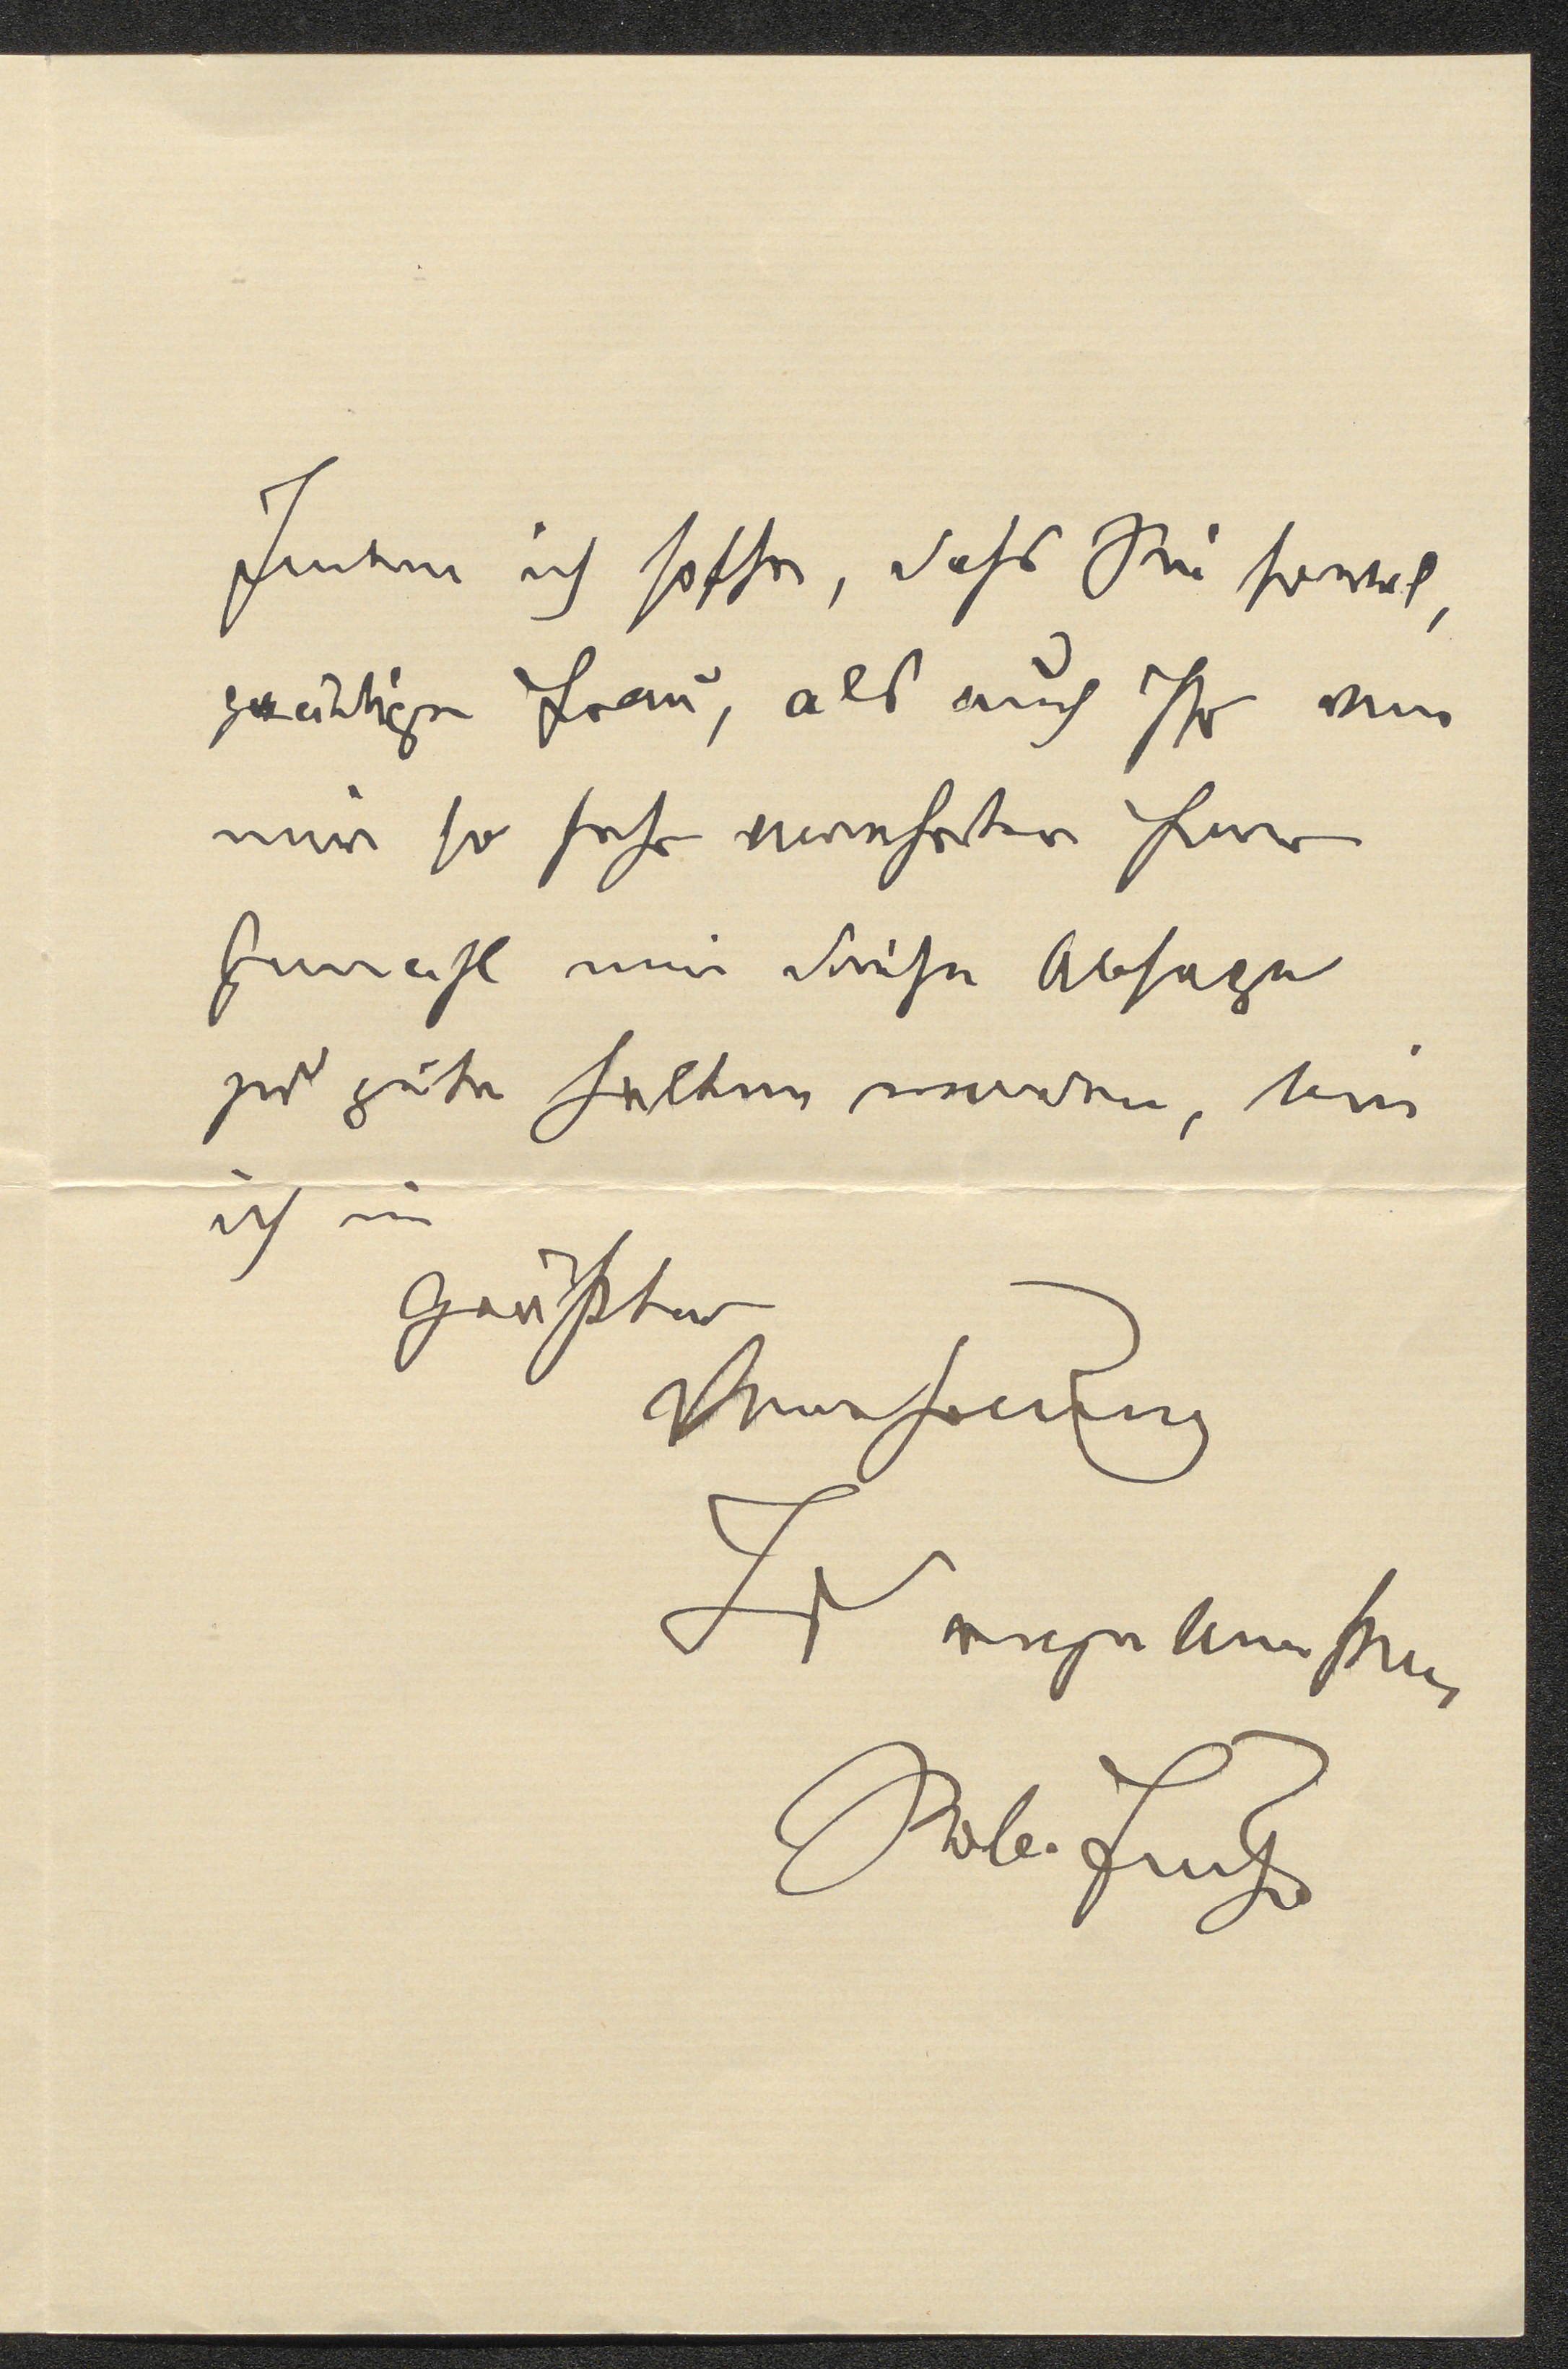 Indem ich hoffe, dass Sie sowol,
gnädige Frau, als auch Ihr von
mir so sehr verehrter Herr
Gemahl mir diese Absage
zu gute halten werden, bin
ich in
größter
Verehrung
Ihr ergebenster
Rob. Fuchs